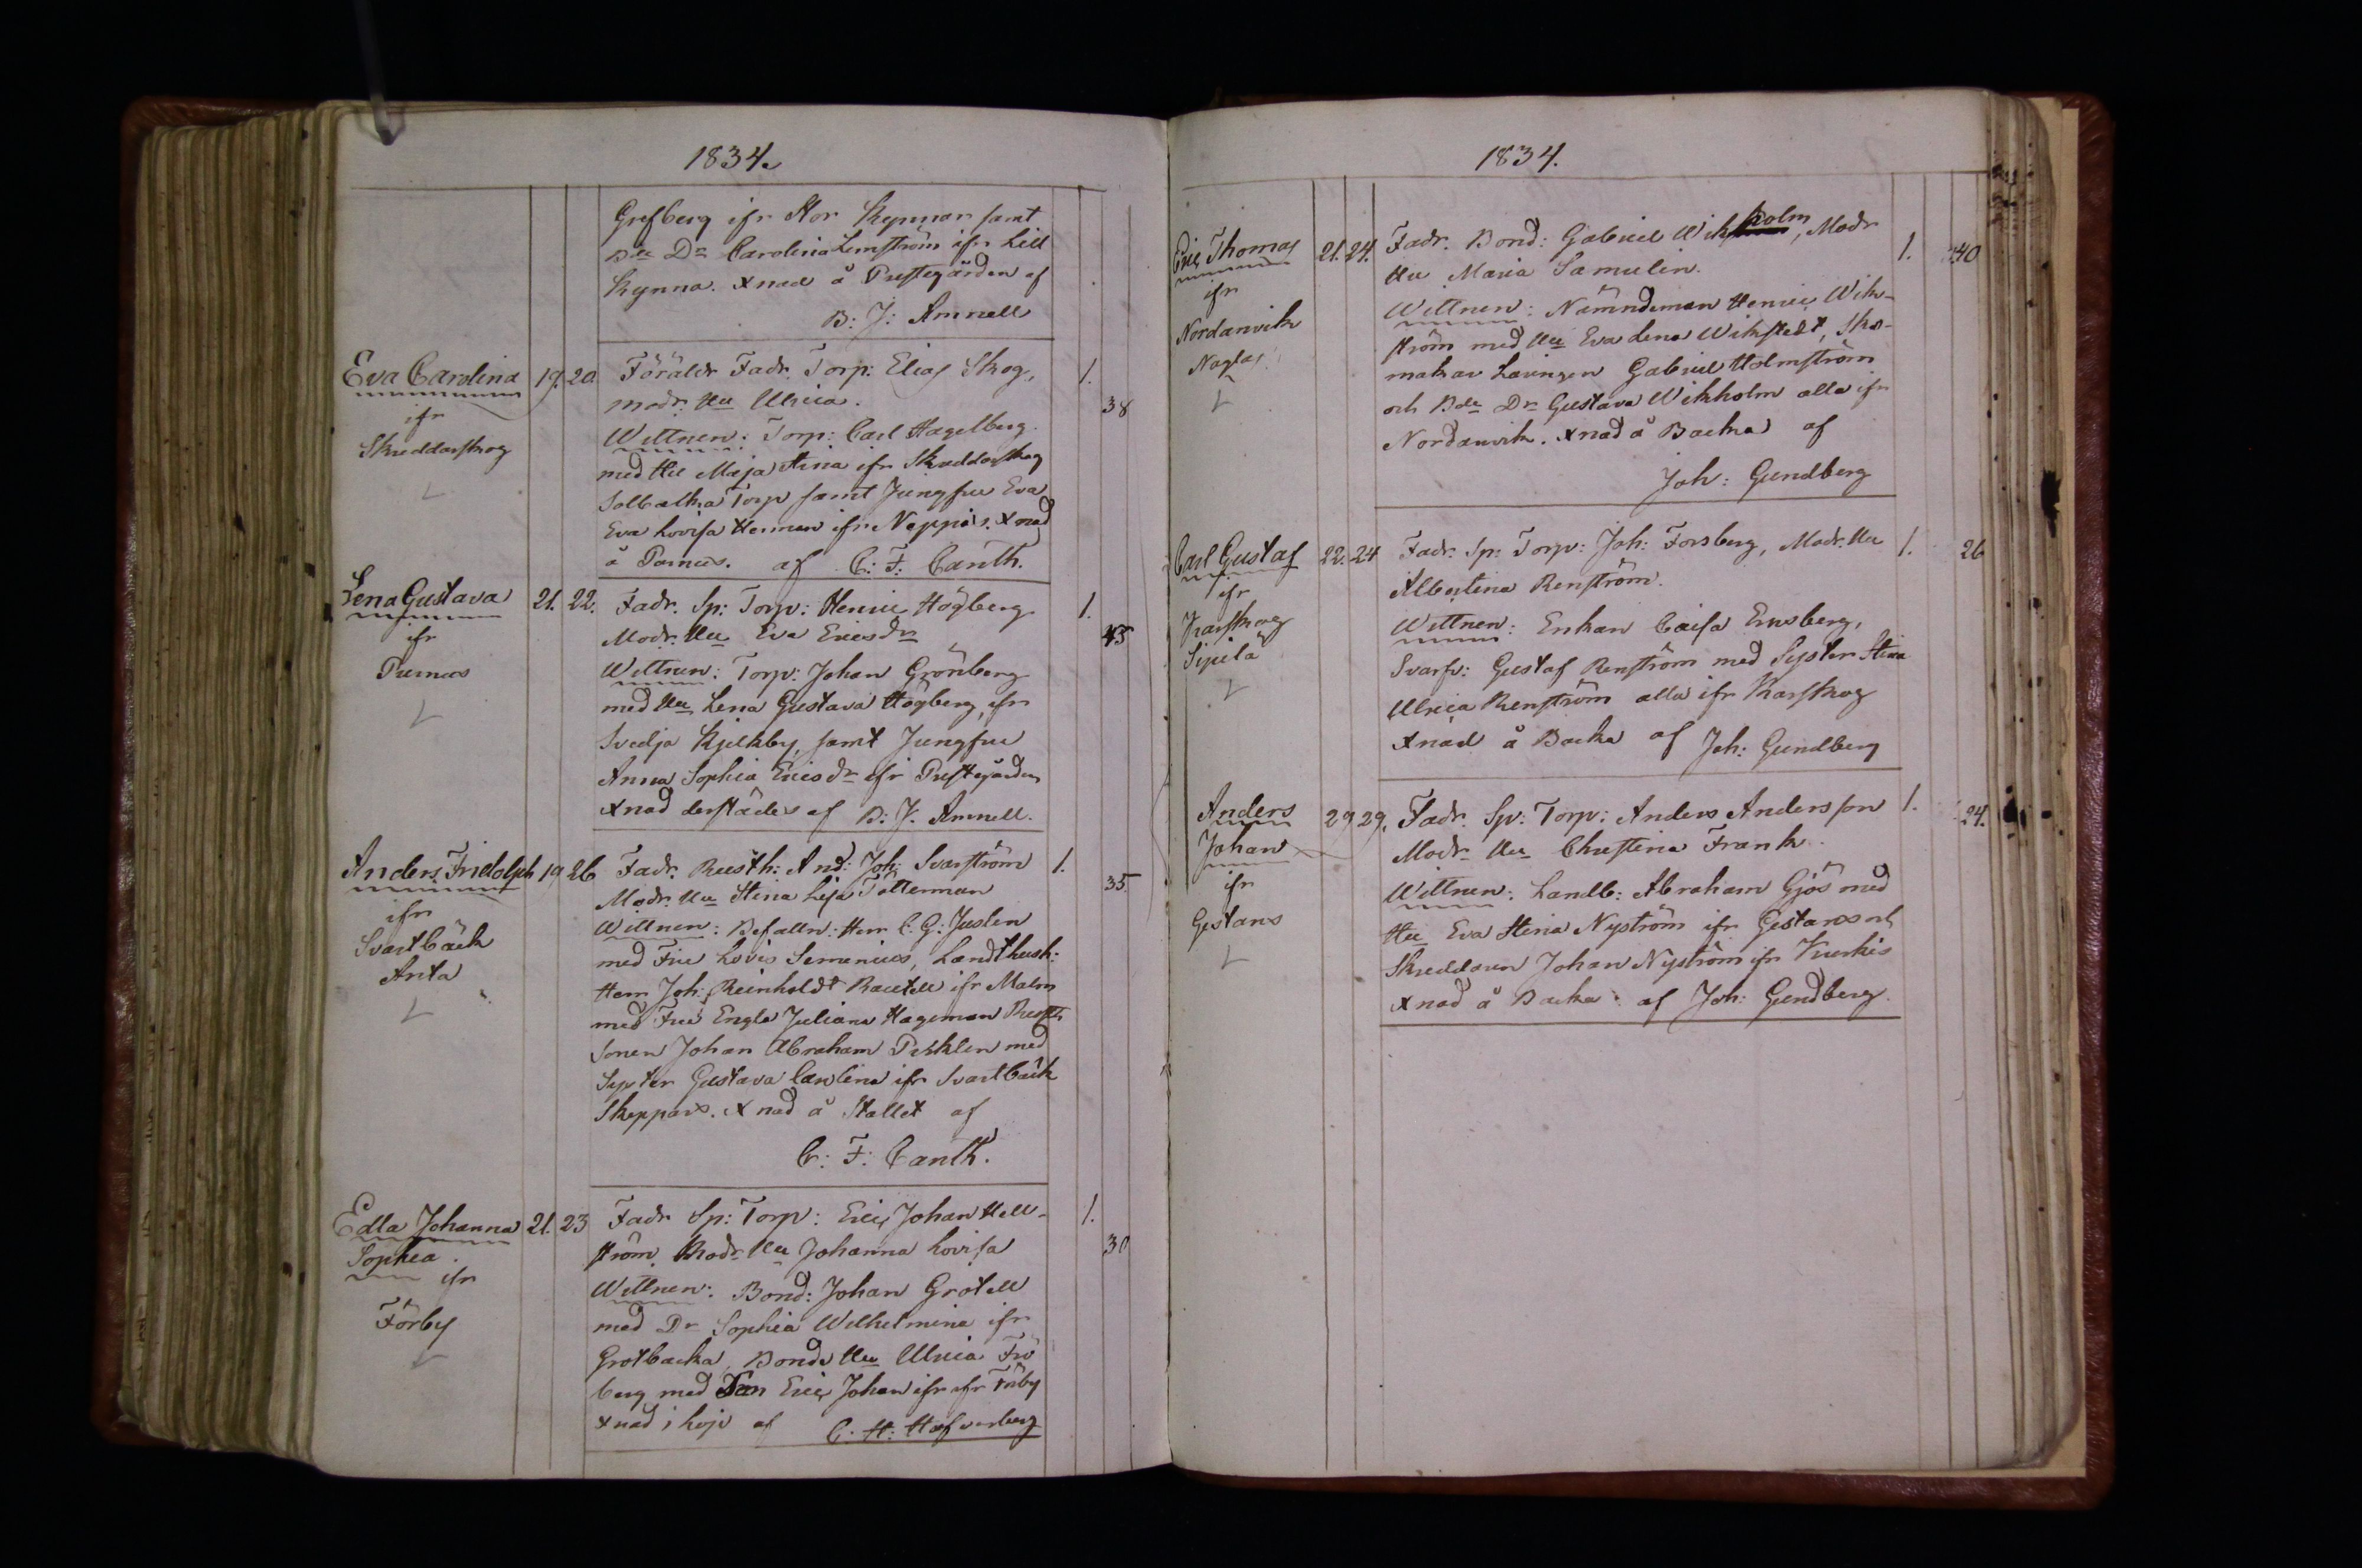 1834.
Grefberg ifr Stor Kynnar samt
Bde Dr Carolina Lemström ifr Lill
Kynna. Xnad å Prestegården af
B: J: Amnell
Eva Carolina 19. 20 Föräldr Fadr. Torp: Elias Skog, 1.
modr. Hu Ulrica. 38
ifr
Skreddarskog
Wittnen: Torp: Carl Hagelberg
med Hu Maja Stina ifr Skreddarskog
Torp samt Jungfru Eva
Eva Lovisa ifr Neppäs. Xnad
å Parnus. af C: F: Canth.
Lena Gustava 21. 22. Fadr. Sp: Torp: Henric Högberg 1.
Modr. Hu Eva Ericsdr 45
ifr
Purnus
Wittnen: Torp: Johan Grönberg
med Hu Lena Gustava Högberg, ifr
Svedja Kjelkby, samt Jungfru
Anna Sophia Ericsdr ifr Prestgården
Xnad derstädes af B: J. Amnell.
Anders Fridolph 19 26 Fadr. Rusth: And: Joh: Svarström 1.
Modr. Hu Stina Lisa Tötterman 35
ifr
Svartbäck
Anta
Wittnen: Befalln: Herr C. G: Juslen
med Fru Lovis Serenius, Landtkush:
Herr Joh: Reinholdt Rautell ifr Malm
med Fru Engla Juliana Hageman Rusth
sonen Johan Abraham Pehklen med
Syster Gustava Carolina ifr Svartbäck
Skeppars. Xnad å Stället af
C: F: Canth.
Edla Johanna 21. 23 Fadr Sp: Torp: Eric Johan Hell- 1.
Sophia
ström, Modr Hu Johanna Lovisa 30
ifr
Förby
Wittnen: Bond: Johan Grotell
med Dr Sophia Wilhelmina ifr
Grotbacka, Bonde Hu Ulrica Frö
berg med Son Eric Johan ifr ifr Förby
Xnad i Lojo af C. H: Hafverberg
1834.
Eric Thomas 21. 24. Fadr. Bond: Gabriel Wikholm, Modr 1. 40
Hu Maria Samulin.
ifr
Nordanvik
Naglas
Wittnen: Nämndeman Henric Wik-
ström med Hu Eva Lena Wikstedt, Sko-
makar Lärlingen Gabriel Holmström
och Bde Dr Gustava Wikholm alla ifr
Nordanvik. Xnad å Backa af
Joh: Gundberg
Carl Gustaf 22. 24 Fadr. Sp: Torp: Joh: Forsberg, Modr. Hu 1. 26
Albertina Renström.
ifr
Karskog
Sipilä
Wittnen: Enkan Caisa Ernsberg,
Svarfv: Gustaf Renström med Syster Stina
Ulrica Renström alla ifr Karskog
Xnad å Backa af Joh: Gundberg
Anders 29 29. Fadr. Sp: Torp: Anders Andersson 1. 24.
Johan
Modr Hu Christina Frank.
ifr
Gestans
Wittnen: Landb: Abraham Gjös med
Hu Eva Stina Nyström ifr Gestans och
Skreddaren Johan Nyström ifr Kurkis
Xnad å Backa af Joh: Gundberg.